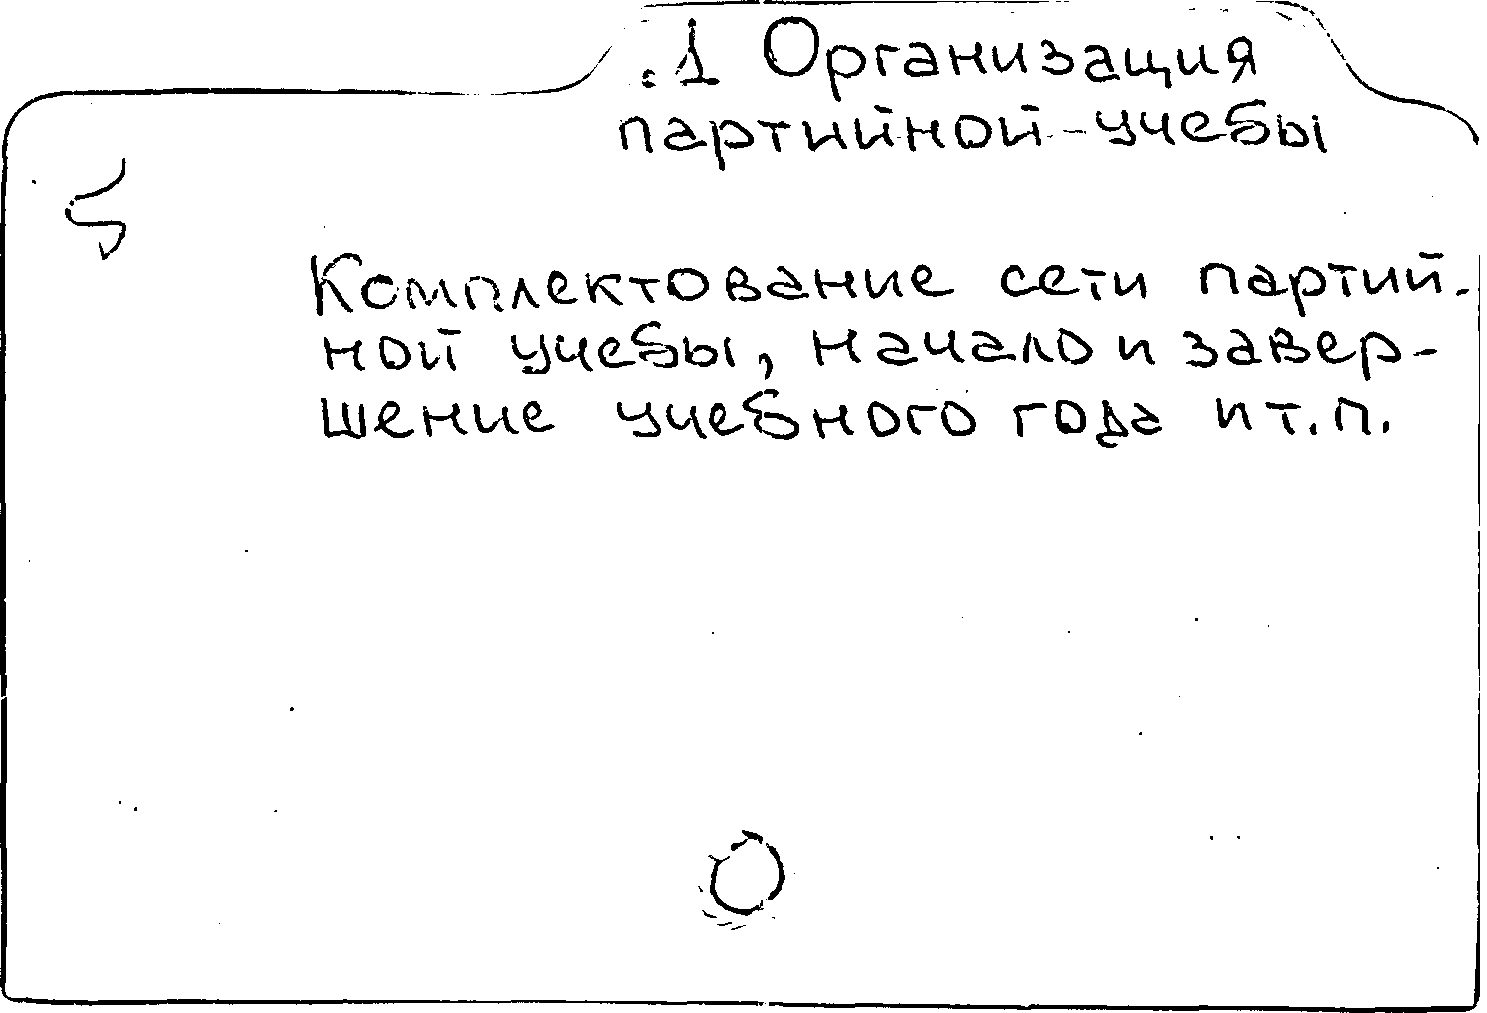 .1 Организация
партийной учебы
Комплектование сети партий-
ной учебы, начало и завер-
шение учебного года и т.п.